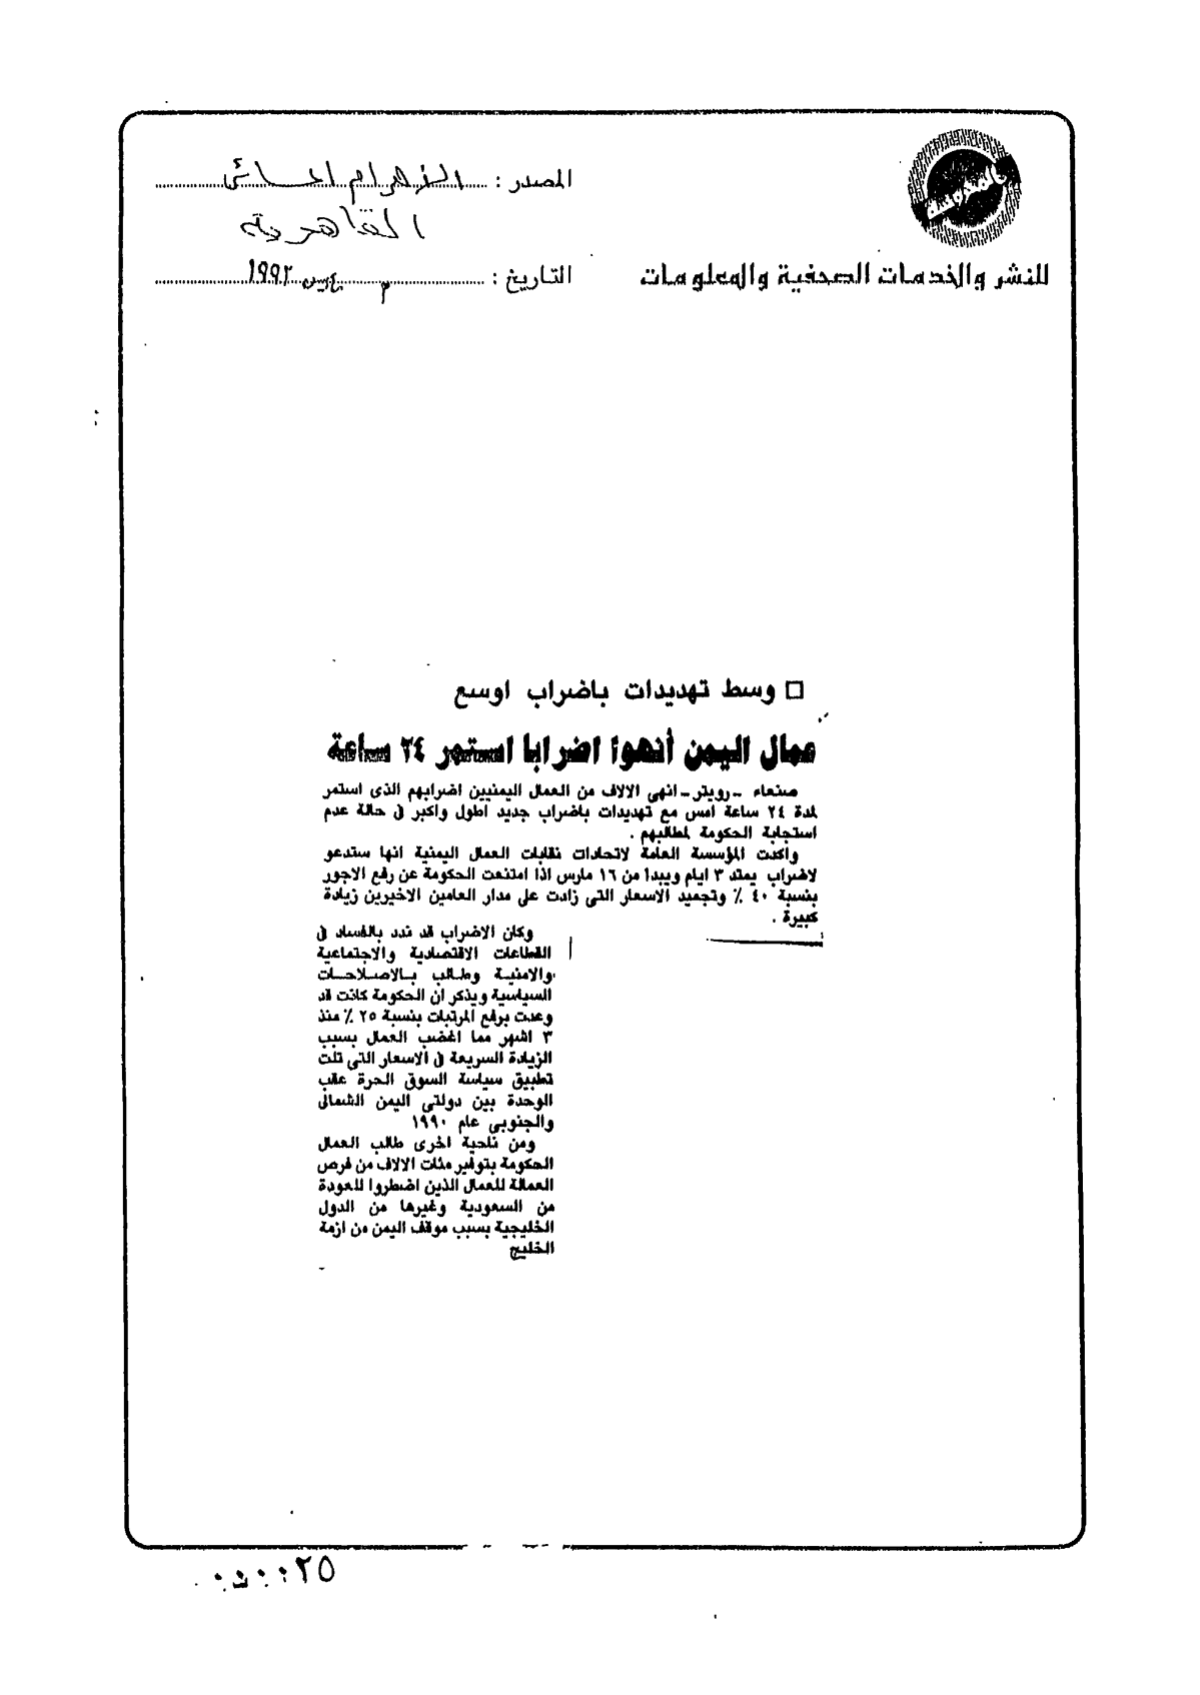 المصدر : الأهرام المسائى
القاهرية
للنشر والخدمات الصحفية والمعلومات
التاريخ : ٣ مارس ١٩٩٢
□ وسط تهديدات باضراب اوسع
عمال اليمن أنهوا اضرابا استمر ٢٤ ساعة
صنعاء - رويتر - انهى الالاف من العمال اليمنيين اضرابهم الذى استمر
لمدة ٢٤ ساعة امس مع تهديدات باضراب جديد اطول واكبر فى حالة عدم
استجابة الحكومة لمطالبهم .
واكدت المؤسسة العامة لاتحادات نقابات العمال اليمنية انها ستدعو
لاضراب يمتد ٣ ايام ويبدا من ١٦ مارس اذا امتنعت الحكومة عن رفع الاجور
بنسبة ٤٠ ٪ وتجميد الاسعار التى زادت على مدار العامين الاخيرين زيادة
كبيرة .
وكان الاضراب قد ندد بالفساد فى
القطاعات الاقتصادية والاجتماعية
والامنية وطالب بالاصلاحات
السياسية ويذكر ان الحكومة كانت قد
وعدت برفع المرتبات بنسبة ٢٥ ٪ منذ
٣ اشهر مما اغضب العمال بسبب
الزيادة السريعة فى الاسعار التى تلت
تطبيق سياسة السوق الحرة عقب
الوحدة بين دولتى اليمن الشمالى
والجنوبى عام ١٩٩٠
ومن ناحية اخرى طالب العمال
الحكومة بتوفير مئات الالاف من فرص
العمالة للعمال الذين اضطروا للعودة
من السعودية وغيرها من الدول
الخليجية بسبب موقف اليمن من ازمة
الخليج